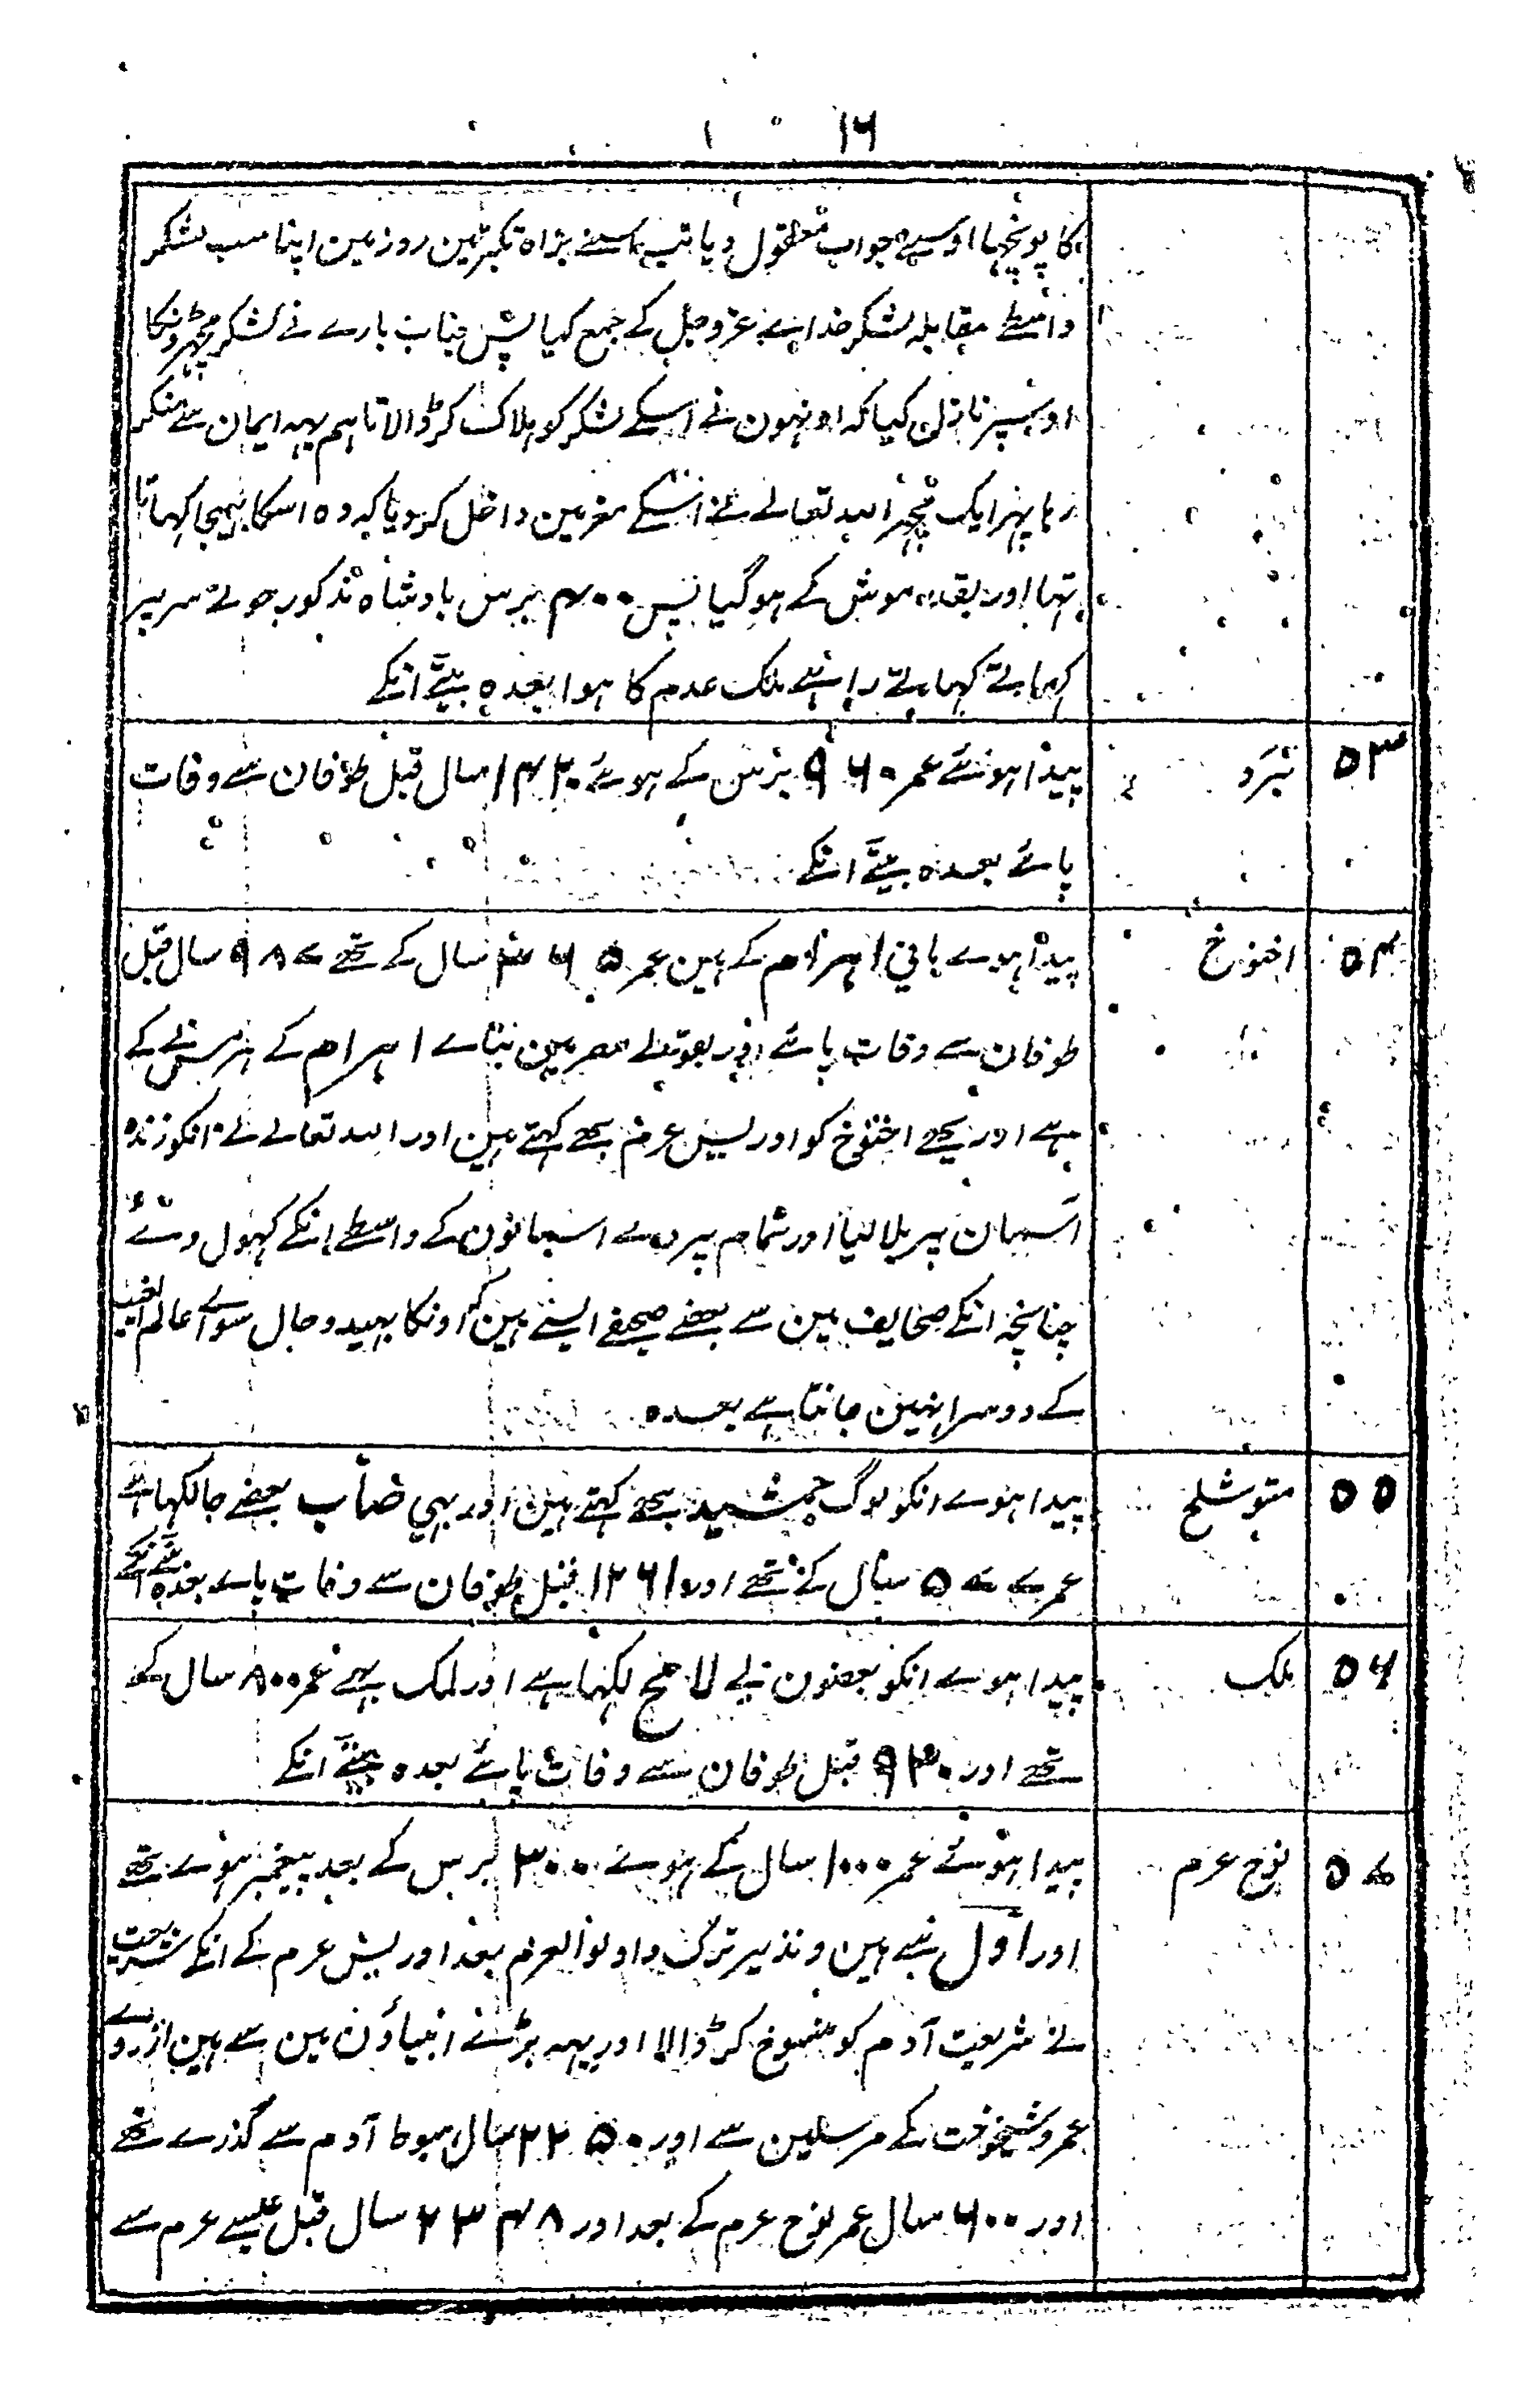 ۱۶
کا پونچہا اوسنے جواب معقول دیا تب اسنے بڑاہ تکبر تین روز مین اپنا سب لشکر
واسطے مقابلہ لشکر خداے عزوجل کے جمع کیا پس جناب بارے نے لشکر مچھرونکا
اوسپر نازل کیا کہ اونہون نے اسکے لشکر کو ہلاک کر ڈالا تاہم یہہ ایمان سے منکر
رہا پہر ایک مچھر اللہ تعالے نے اسکے مغز مین داخل کر دیا کہ وہ اسکا بہیجا کہاتا
تہا اور بقدر موش کے ہو گیا پس ۴۰۰ برس بادشاہ مذکور جوتے سر پر
کہاتے کہاتے راہئے ملک عدم کا ہوا بعدہ بیٹے انکے
۵۳ یرد پیدا ہوئے عمر ۹۶۰ برس کے ہوئے ۱۴۲۰ سال قبل طوفان سے وفات
پائے بعدہ بیٹے انکے
۵۴ اخنوخ پیدا ہوے بانی اہرام کے ہین عمر ۳۶۵ سال کے تھے ۹۸۷ سال قبل
طوفان سے وفات پائے اور بقولے مصر مین بناے اہرام کے ہرمس نے کے
ہے اور یہے اخنوخ کو ادریس عرم بہے کہتے ہین اور اللہ تعالے نے انکو زندہ
آسمان پر بلا لیا اور تمام پردے اسمانون کے واسطے انکے کہول دئے
چنانچہ انکے صحایف مین سے بعضے صحیفے ایسے ہین کہ اونکا بہید و حال سواے عالم الغیب
کے دوسرا نہین جانتا ہے بعدہ
۵۵ متوشلح پیدا ہوے انکو لوگ جمشید بہے کہتے ہین اور بہی ضاب بعضے جا لکہا ہے
عمر ۵۷۷ سال کے تھے اور ۱۲۶۱ قبل طوفان سے وفات پاے بعدہ بیٹے انکے
۵۶ ملک پیدا ہوے انکو بعضون نے لامخ لکہا ہے اور لمک بہے عمر ۸۰۰ سال کے
تھے اور ۹۳۰ قبل طوفان سے وفات پائے بعدہ بیٹے انکے
۵۷ نوح عرم پیدا ہوئے عمر ۱۰۰۰ سال کے ہوئے ۳۰۰ برس کے بعد پیغمبر ہوے تھے
اور اول نبے ہین و نذیر ترک و اولوالعزم بعد ادریس عرم کے انکے شریعت
نے شریعت آدم کو منسوخ کر ڈالا اور یہہ بڑے انبیاؤن مین سے ہین از روے
عمر و شیخوخت کے مرسلین سے اور ۲۲۵۰ سال ہبوط آدم سے گذرے تھے
اور ۶۰۰ سال عمر نوح عرم کے بعد اور ۲۳۴۸ سال قبل عیسے عرم سے